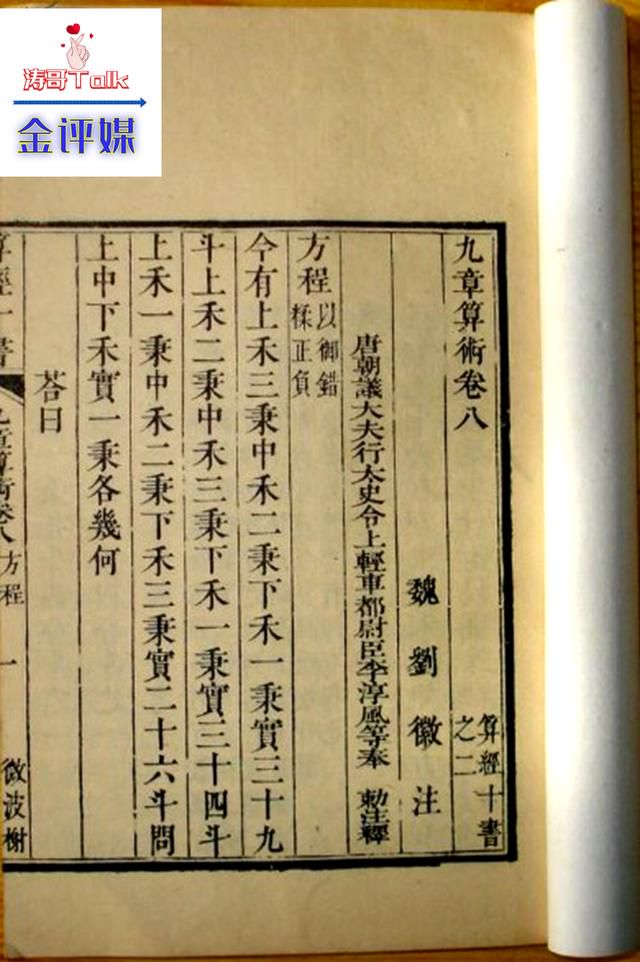 涛哥Talk
金评媒
九章算術卷八
算經十書
之二
魏劉徽注
唐朝議大夫行太史令上輕車都尉臣李淳風等奉 勅注釋
方程以御錯
糅正負
今有上禾三秉中禾二秉下禾一秉實三十九
斗上禾二秉中禾三秉下禾一秉實三十四斗
上禾一秉中禾二秉下禾三秉實二十六斗問
上中下禾實一秉各幾何
荅曰
算經十書
九章算術卷八方程
一
微波榭